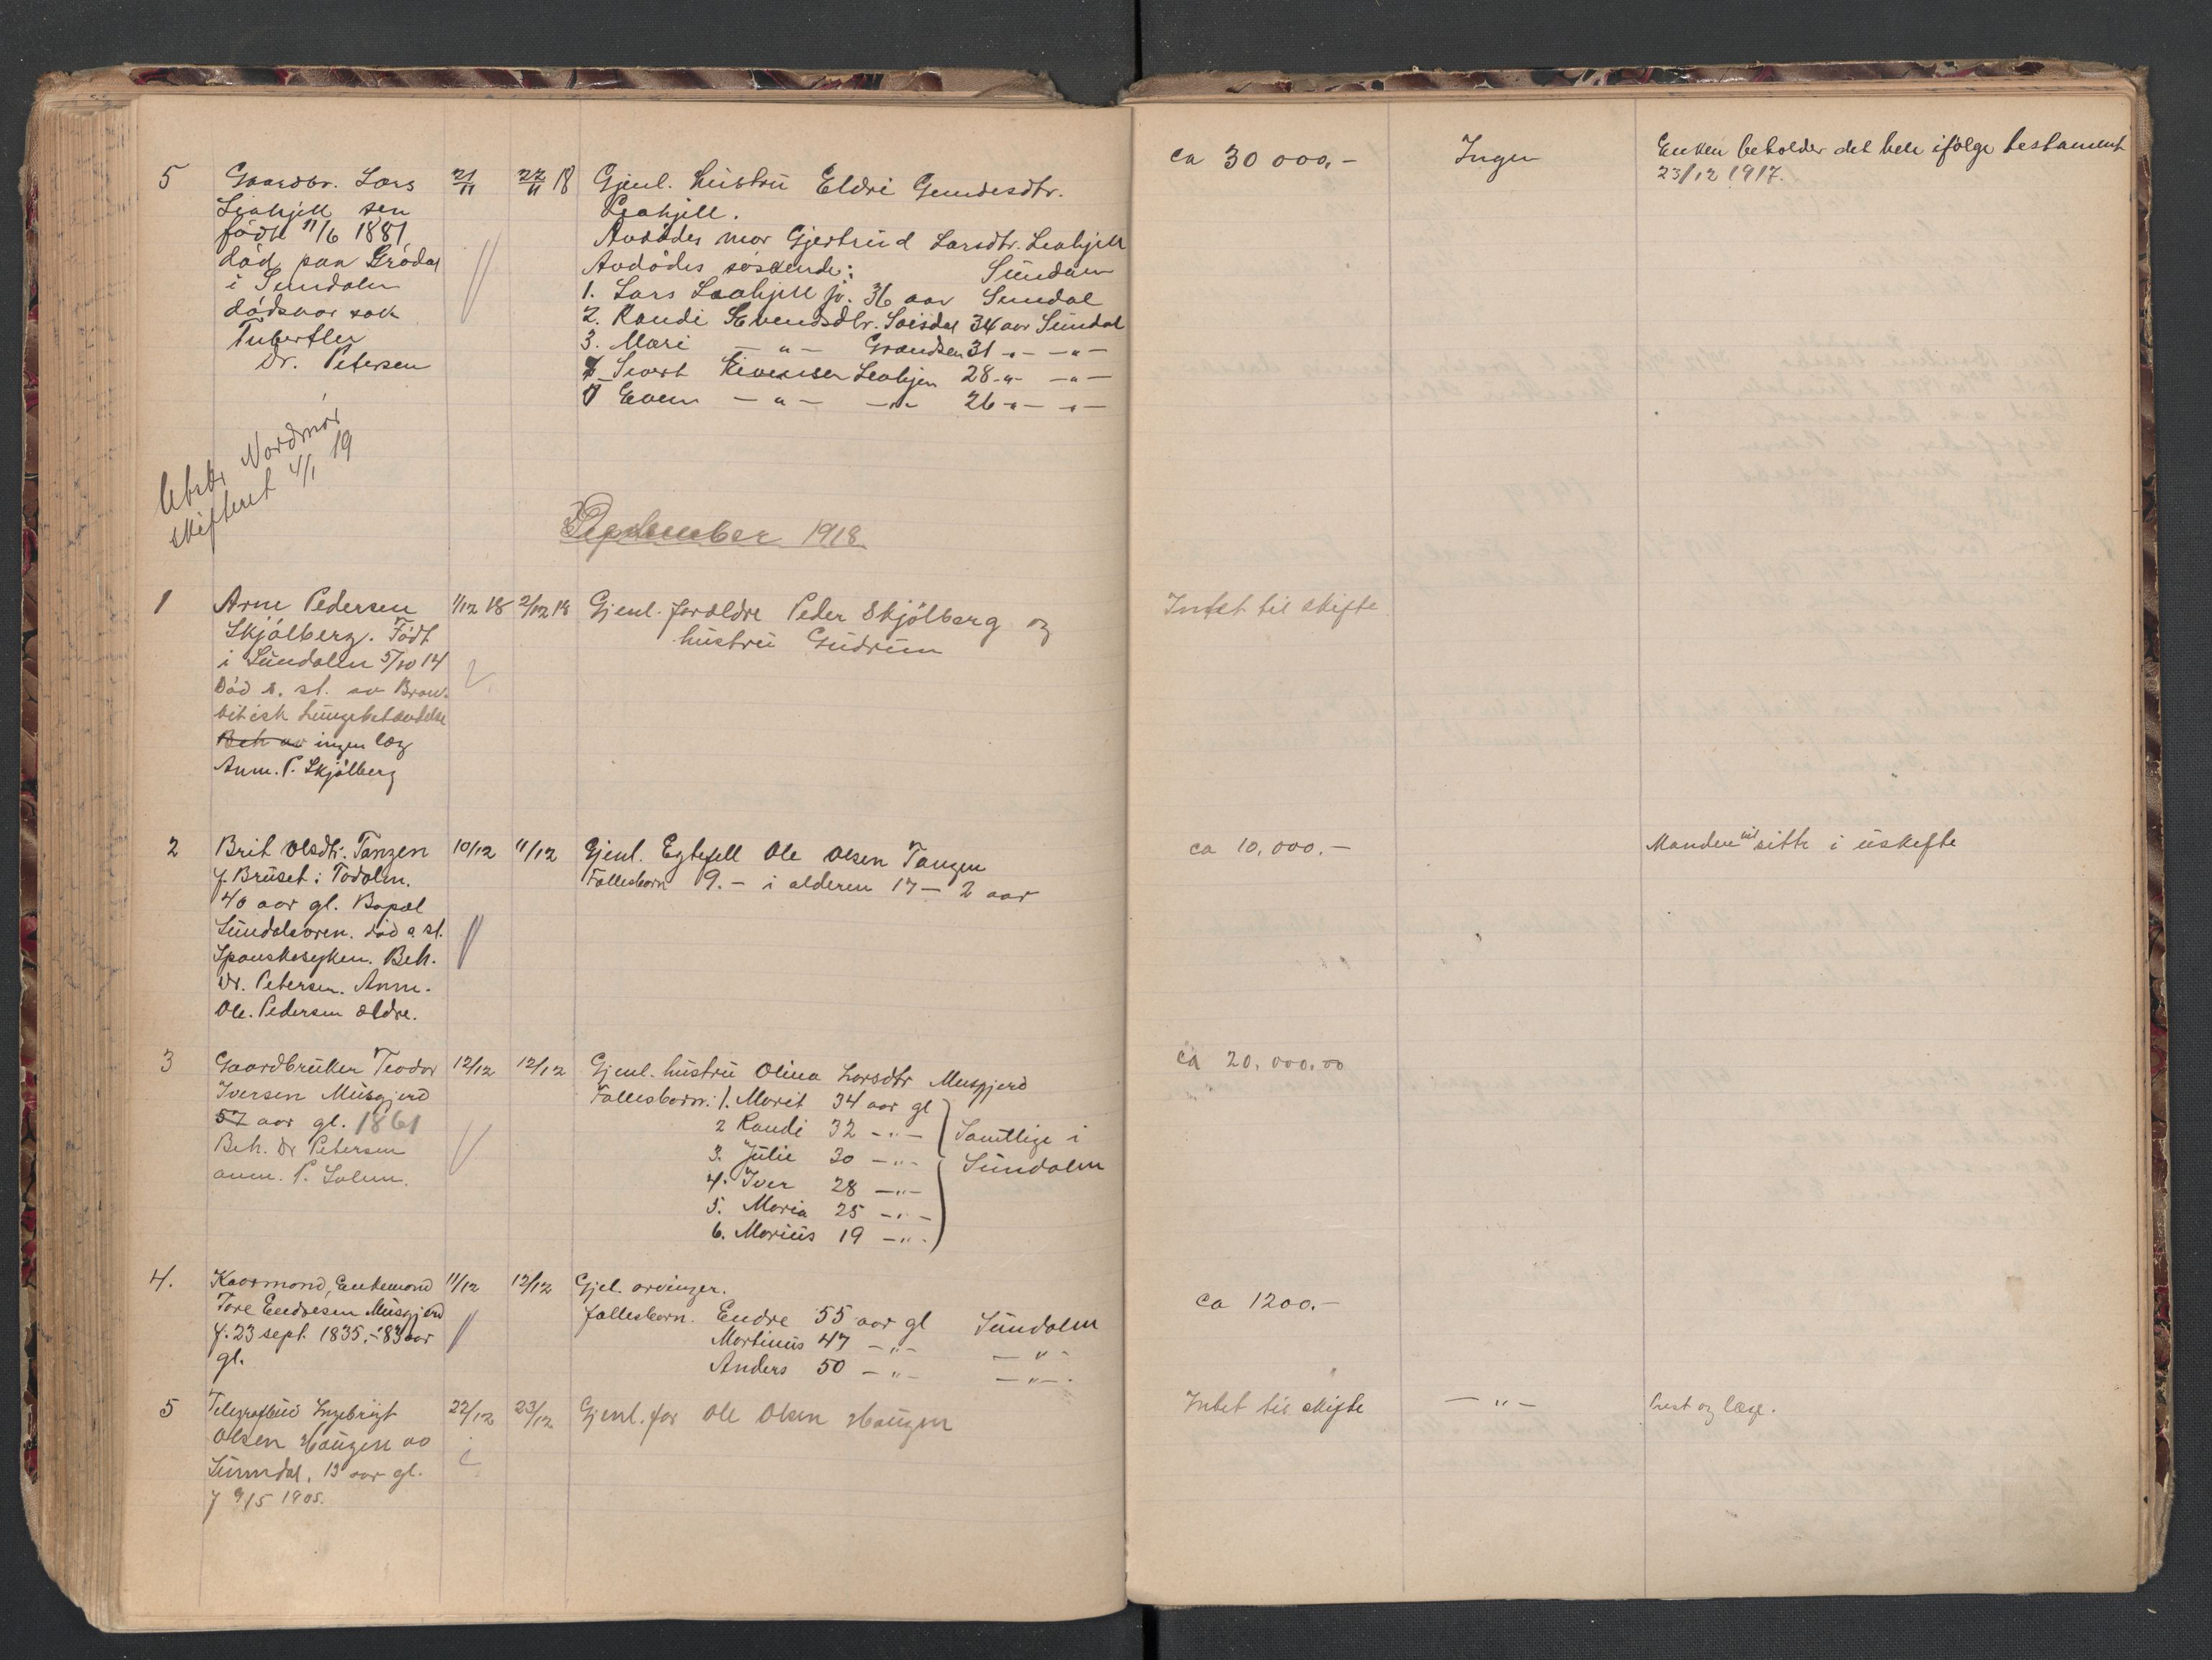 5 Gaardbr. Lars 21/11 22/11 18 Gjenl. hustru Eldri Gundesdtr. ca 30 000,- Ingen Enken beholder det hele ifølge testament
Leahjell sen Leahjell. 23/12 1917.
født 11/6 1881 Avdødes mor Gjertrud Larsdtr. Leahjell
død paa Grødal Avdødes søskende: Sundalen
i Sundalen 1. Lars Leahjell jr. 36 aar Sundal
dødsaarsak 2. Randi Evendsdtr. 34 aar Sundal
Tuberkler 3. Mari - " - 31 - " - - " -
Dr. Petersen 4 Sivert Leahjell 28 - " - - " -
5 Even - " - - " - 26 - " - - " -
Utskr. Nordmør
skifteret 4/1 19
December 1918
1 Arne Pedersen 1/12 18 2/12 18 Gjenl. forældre Peder Skjølberg og Intet til skifte
Skjølberg. Født hustru Gudrun
i Sundalen 5/10 14
Død s. st. av Bron-
kitisk Lungebetændelse
Beh av ingen læg
Anm. P. Skjølberg
2 Brit Olsdtr. Tangen 10/12 11/12 Gjenl. Egtefell Ole Olsen Tangen ca 10,000.- Manden vil sitte i uskifte
f. Bruset i Todalen. Fællesbarn 9.- i alderen 17 - 2 aar
40 aar gl. Bopæl
Sundalsøren. død s. st.
Spanskesyken. Beh.
Dr. Petersen. Anm.
Ole. Pedersen ældre.
3 Gaardbruker Teodor 12/12 12/12 Gjenl. hustru Olina Larsdtr Musgjerd ca 20,000.00
Iversen Musgjerd Fællesbarn: 1. Marit 34 aar gl
57 aar gl. 1861 2 Randi 32 - " - Samtlige i
Beh. Dr Petersen 3. Julie 30 - " - Sundalen
anm. P. Solem. 4. Iver 28 - " -
5. Maria 25 - " -
6. Marius 19 - " -
4. Kaarmand, Enkemand 11/12 12/12 Gjel. arvinger. ca 1200.-
Tore Endresen Musgjerd fællesbarn. Endre 55 aar gl Sundalen
f. 23 sept. 1835. - 83 aar Martinus 47 - " - - " -
gl. Anders 50 - " - - " -
5 Telegrafbud Ingebrigt 22/12 23/12 Gjenl. far Ole Olsen Haugen Intet til skifte - " - Prest og læge.
Olsen Haugen av
Sunndal, 13 aar gl.
f 9/5 1905.